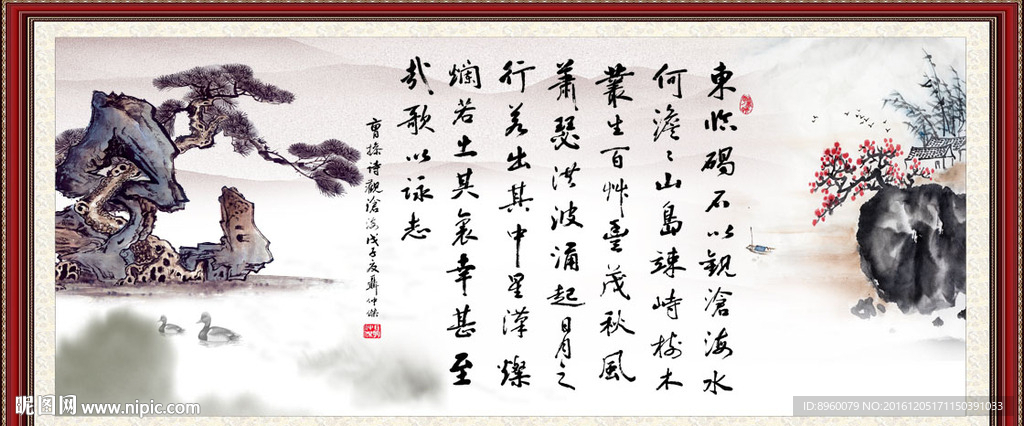 東臨碣石以觀滄海水
何澹〻山島竦峙樹木
叢生百艸豐茂秋風
蕭瑟洪波涌起日月之
行若出其中星漢燦
爛若出其裏幸甚至
哉歌以詠志
曹操詩觀滄海戊子夏聶仲傑
昵图网 www.nipic.com
ID:8960079 NO:20161205171150391033